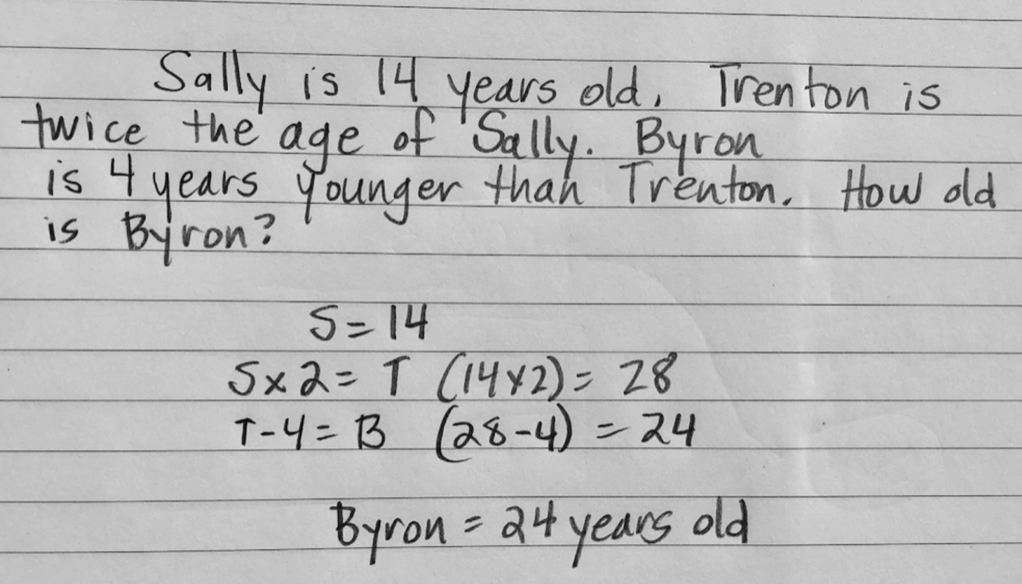 Sally is 14 years old. Trenton is
twice the age of Sally. Byron
is 4 years younger than Trenton. How old
is Byron?
S = 14
S x 2 = T (14 x 2) = 28
T - 4 = B (28 - 4) = 24
Byron = 24 years old